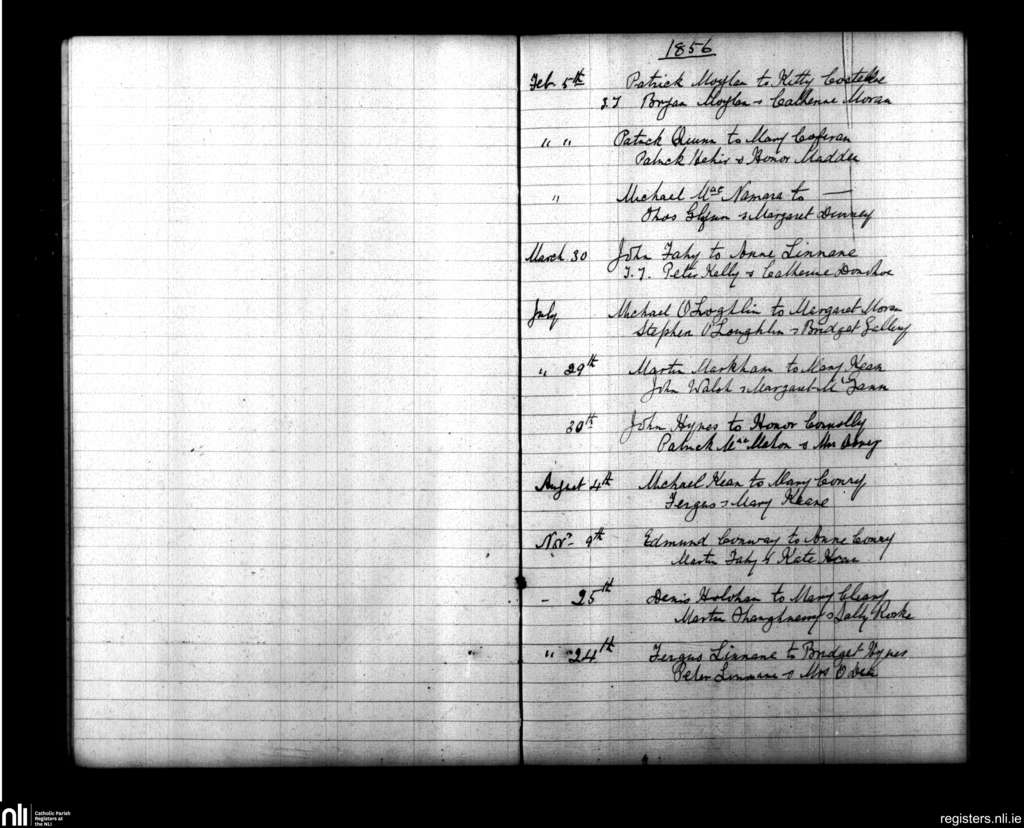 1856
Feb 5th Patrick Moylan to Kitty Costelloe
Bryan Moylan & Catherine Moran
" " Patrick Quinn to Mary
Patrick Hehir & Honor Madden
" Michael Mac Namara to —
Thos Glynn & Margaret
March 30 John Fahy to Anne Linnane
Peter Kelly & Catherine Donohoe
July Michael O'Loghlin to Margaret Moran
Stephen O'Loughlin & Bridget Gallery
" 29th Martin Markham to Mary Kean
John Walsh & Margaret
30th John Hynes to Honor Connolly
Patrick Mac Mahon & Mrs
August 4th Michael Kean to Mary Conry
Fergus & Mary Keane
Novr - 9th Edmund Conway to Anne Conry
Martin Fahy & Kate
- 25th Denis Holohan to Mary Cleary
Martin Shaughnessy & Sally Rooke
" 24th Fergus Linnane to Bridget Hynes
Peter Linnane & Mrs O'Dea
nli
Catholic Parish
Registers at
the NLI
registers.nli.ie